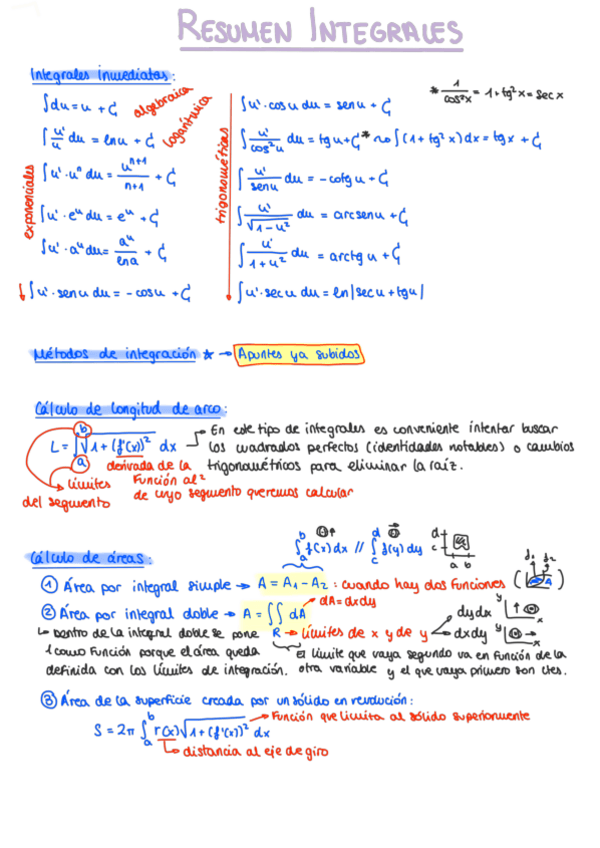 RESUMEN INTEGRALES
Integrales inmediatas:
* 1/cos²x = 1+tg²x = sec x
∫du = u + C
algebraica
∫ u'/u du = lnu + C
logarítmica
∫u'·uⁿ du = uⁿ⁺¹/n+1 + C
exponenciales
∫u'·eᵘ du = eᵘ + C
∫u'·aᵘ du = aᵘ/lna + C
∫u'·senu du = -cosu + C
trigonométricas
∫u'·cosu du = senu + C
∫ u'/cos²u du = tgu + C * ~o ∫(1+tg²x)dx = tgx + C
∫ u'/senu du = -cotgu + C
∫ u'/√1-u² du = arcsenu + C
∫ u'/1+u² du = arctgu + C
∫u'·secu du = ln|secu + tgu|
Métodos de integración * → Apuntes ya subidos
Cálculo de longitud de arco:
L = ∫ₐᵇ √1+(f'(x))² dx → En este tipo de integrales es conveniente intentar buscar
los cuadrados perfectos (identidades notables) o cambios
trigonométricos para eliminar la raíz.
derivada de la
Función al²
de cuyo segmento queremos calcular
límites
del segmento
Cálculo de áreas:
∫ₐᵇ f(x)dx // ∫ d c f(y)dy
d
c
a b
① Área por integral simple → A = A₁ - A₂ : cuando hay dos funciones
f₁ f₂
A
② Área por integral doble → A = ∫∫ dA
R
dA = dxdy
→ límites de x y de y
dydx y x
dxdy y x
↳ Dentro de la integral doble se pone
1 como Función porque el área queda
definida con los límites de integración.
El límite que vaya segundo va en función de la
otra variable y el que vaya primero son ctes.
③ Área de la superficie creada por un sólido en revolución:
S = 2π ∫ₐᵇ r(x)√1+(f'(x))² dx
→ Función que limita al sólido superiormente
↳ distancia al eje de giro